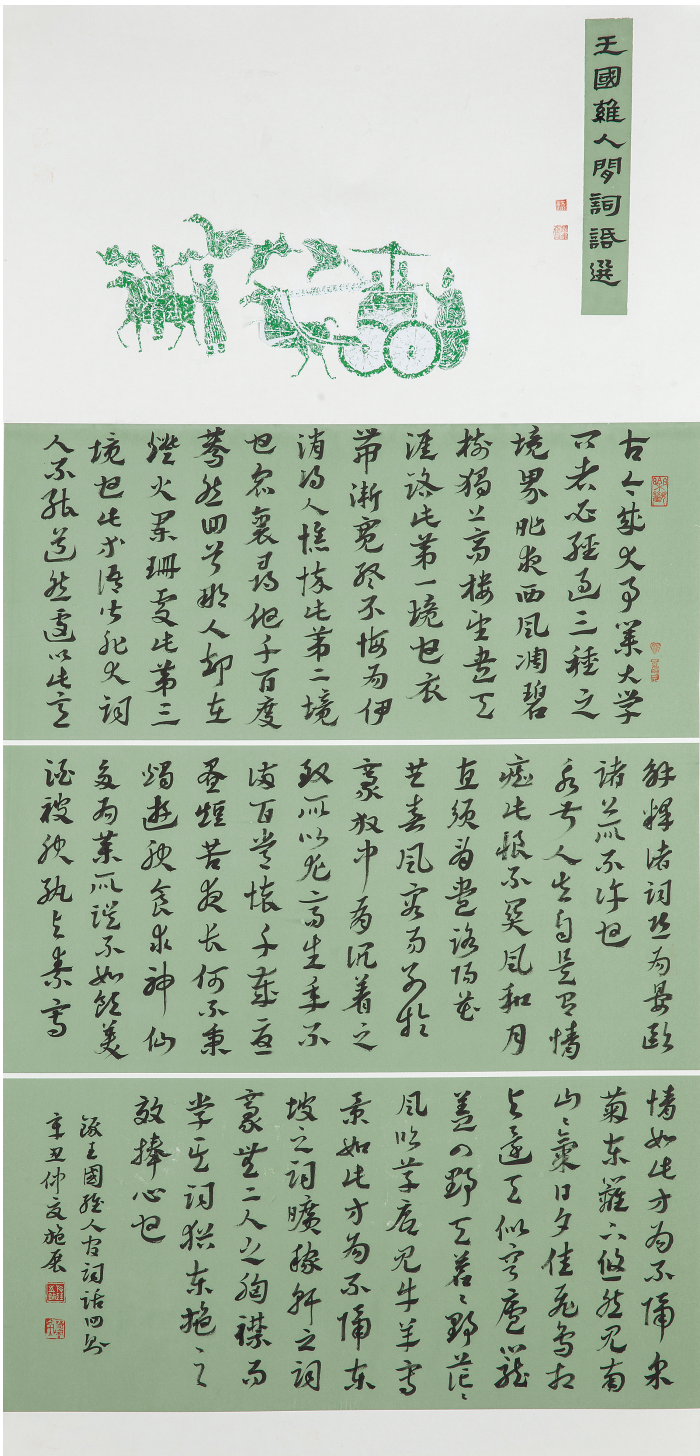 王國維人間詞話選
古今成大事業大学
问者必经过三種之
境界昨夜西風凋碧
樹獨上高楼望盡天
涯路此第一境也衣
帶漸寬终不悔为伊
消得人憔悴此第二境
也众裏尋他千百度
驀然回首那人却在
燈火闌珊處此第三
境也此等语皆非大词
人不能道然遽以此意
解釋诸詞恐为晏歐
诸公所不许也
永叔人生自是有情
痴此恨不関風和月
直须看盡洛阳花
共春風容易别於
豪放中有沉着之
致所以尤高生年不
满百常懷千歲憂
晝短苦夜长何不秉
燭遊服食求神仙
多为藥所误不如饮美
酒被服纨与素寫
情如此方为不隔采
菊东籬下悠然见南
山〻氣日夕佳飛鸟相
与還天似穹廬籠
盖四野天苍〻野茫〻
風吹草底见牛羊寫
景如此方为不隔东
坡之詞曠稼軒之詞
豪無二人之胸襟而
学其詞猶东施之
效捧心也
録王國維人间詞話四则
辛丑仲夏施展